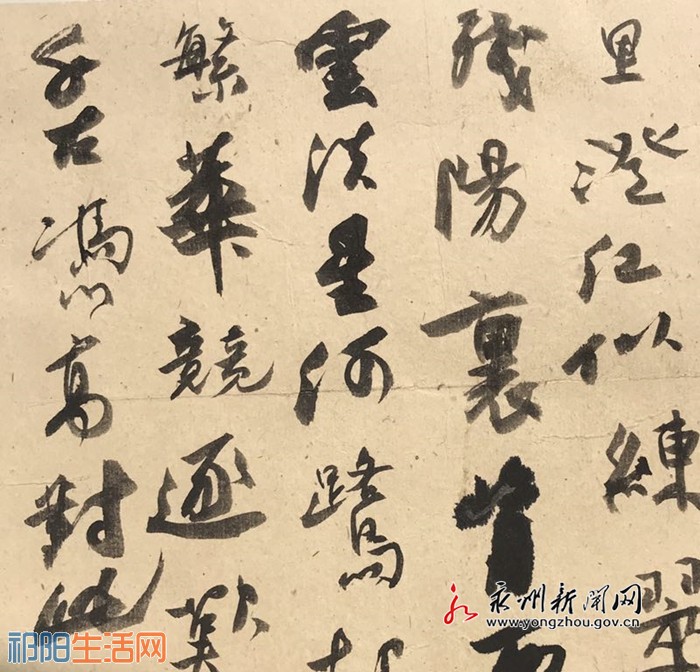 里澄江似練翠
殘陽裏背西
雲淡星河鷺起
繁華競逐歎
千古憑高對此
永州新闻网
www.yongzhou.gov.cn
祁阳生活网